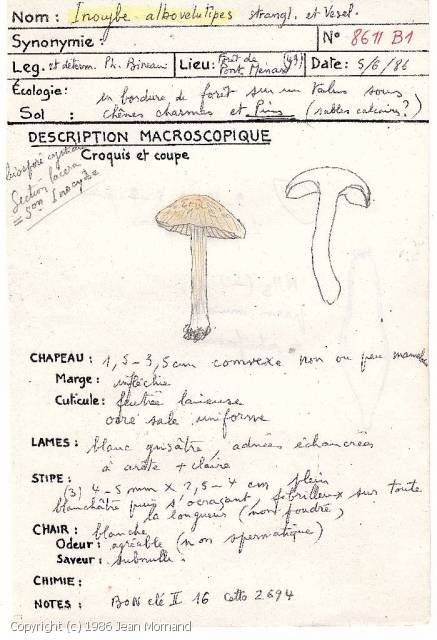 Nom : Inocybe albovelutipes strangl. et Vesel.
Synonymie : N° 8611 B1
Leg. et determ. Ph. Bireau Lieu : Forêt de Pont Ménard (49) Date : 5/6/86
Écologie : en bordure de forêt sur un talus sous
Sol : chênes charmes et Pins (sables calcaires ?)
DESCRIPTION MACROSCOPIQUE
Croquis et coupe
Section lacera
= son Inocybe
CHAPEAU : 1,5-3,5 cm convexe non ou peu
Marge : infléchie
Cuticule : feutrée laineuse
ocré sale uniforme
LAMES : blanc grisâtre, adnées échancrées
à arête + claire
STIPE : (3) 4-5 mm x 2,5-4 cm plein
blanchâtre puis s'ocraçant, fibrilleux sur toute
la longueur (non poudré)
CHAIR : blanche
Odeur : agréable (non spermatique)
Saveur : subnulle.
CHIMIE :
NOTES : BON clé II 16 Cetto 2694
Copyright (c) 1986 Jean Mornand